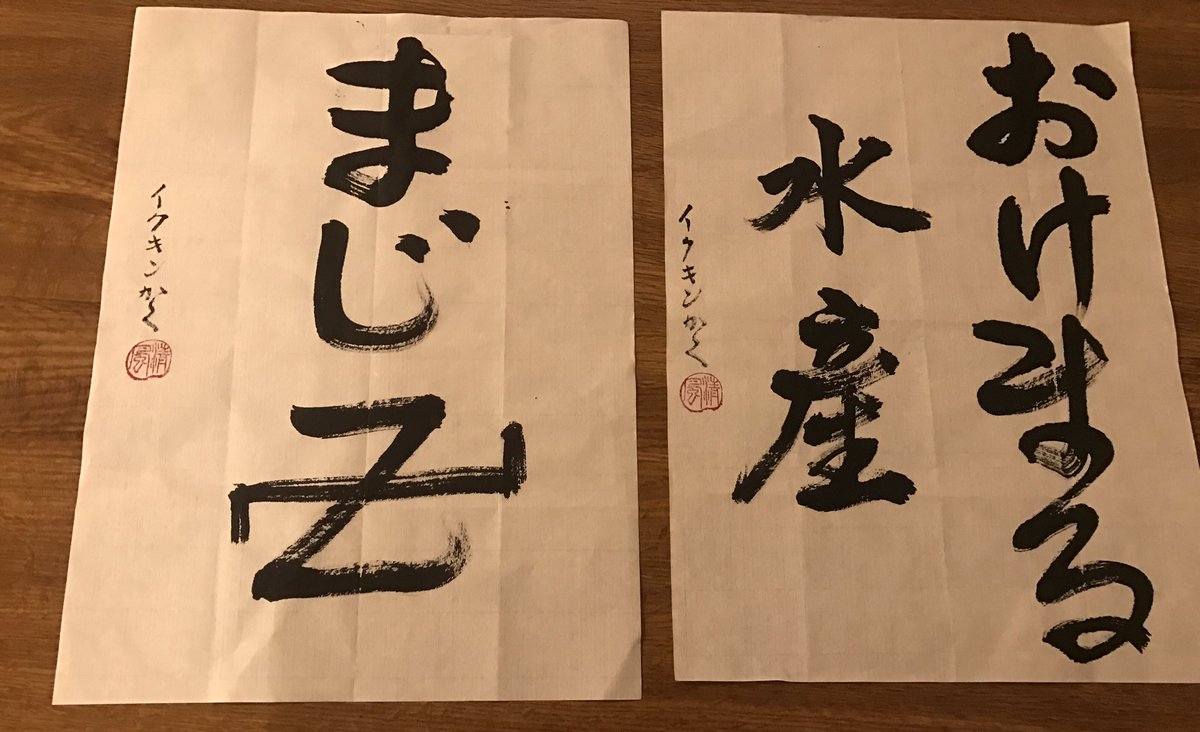 おけまる
水産
イクキンかく
まじ卍
イクキンかく